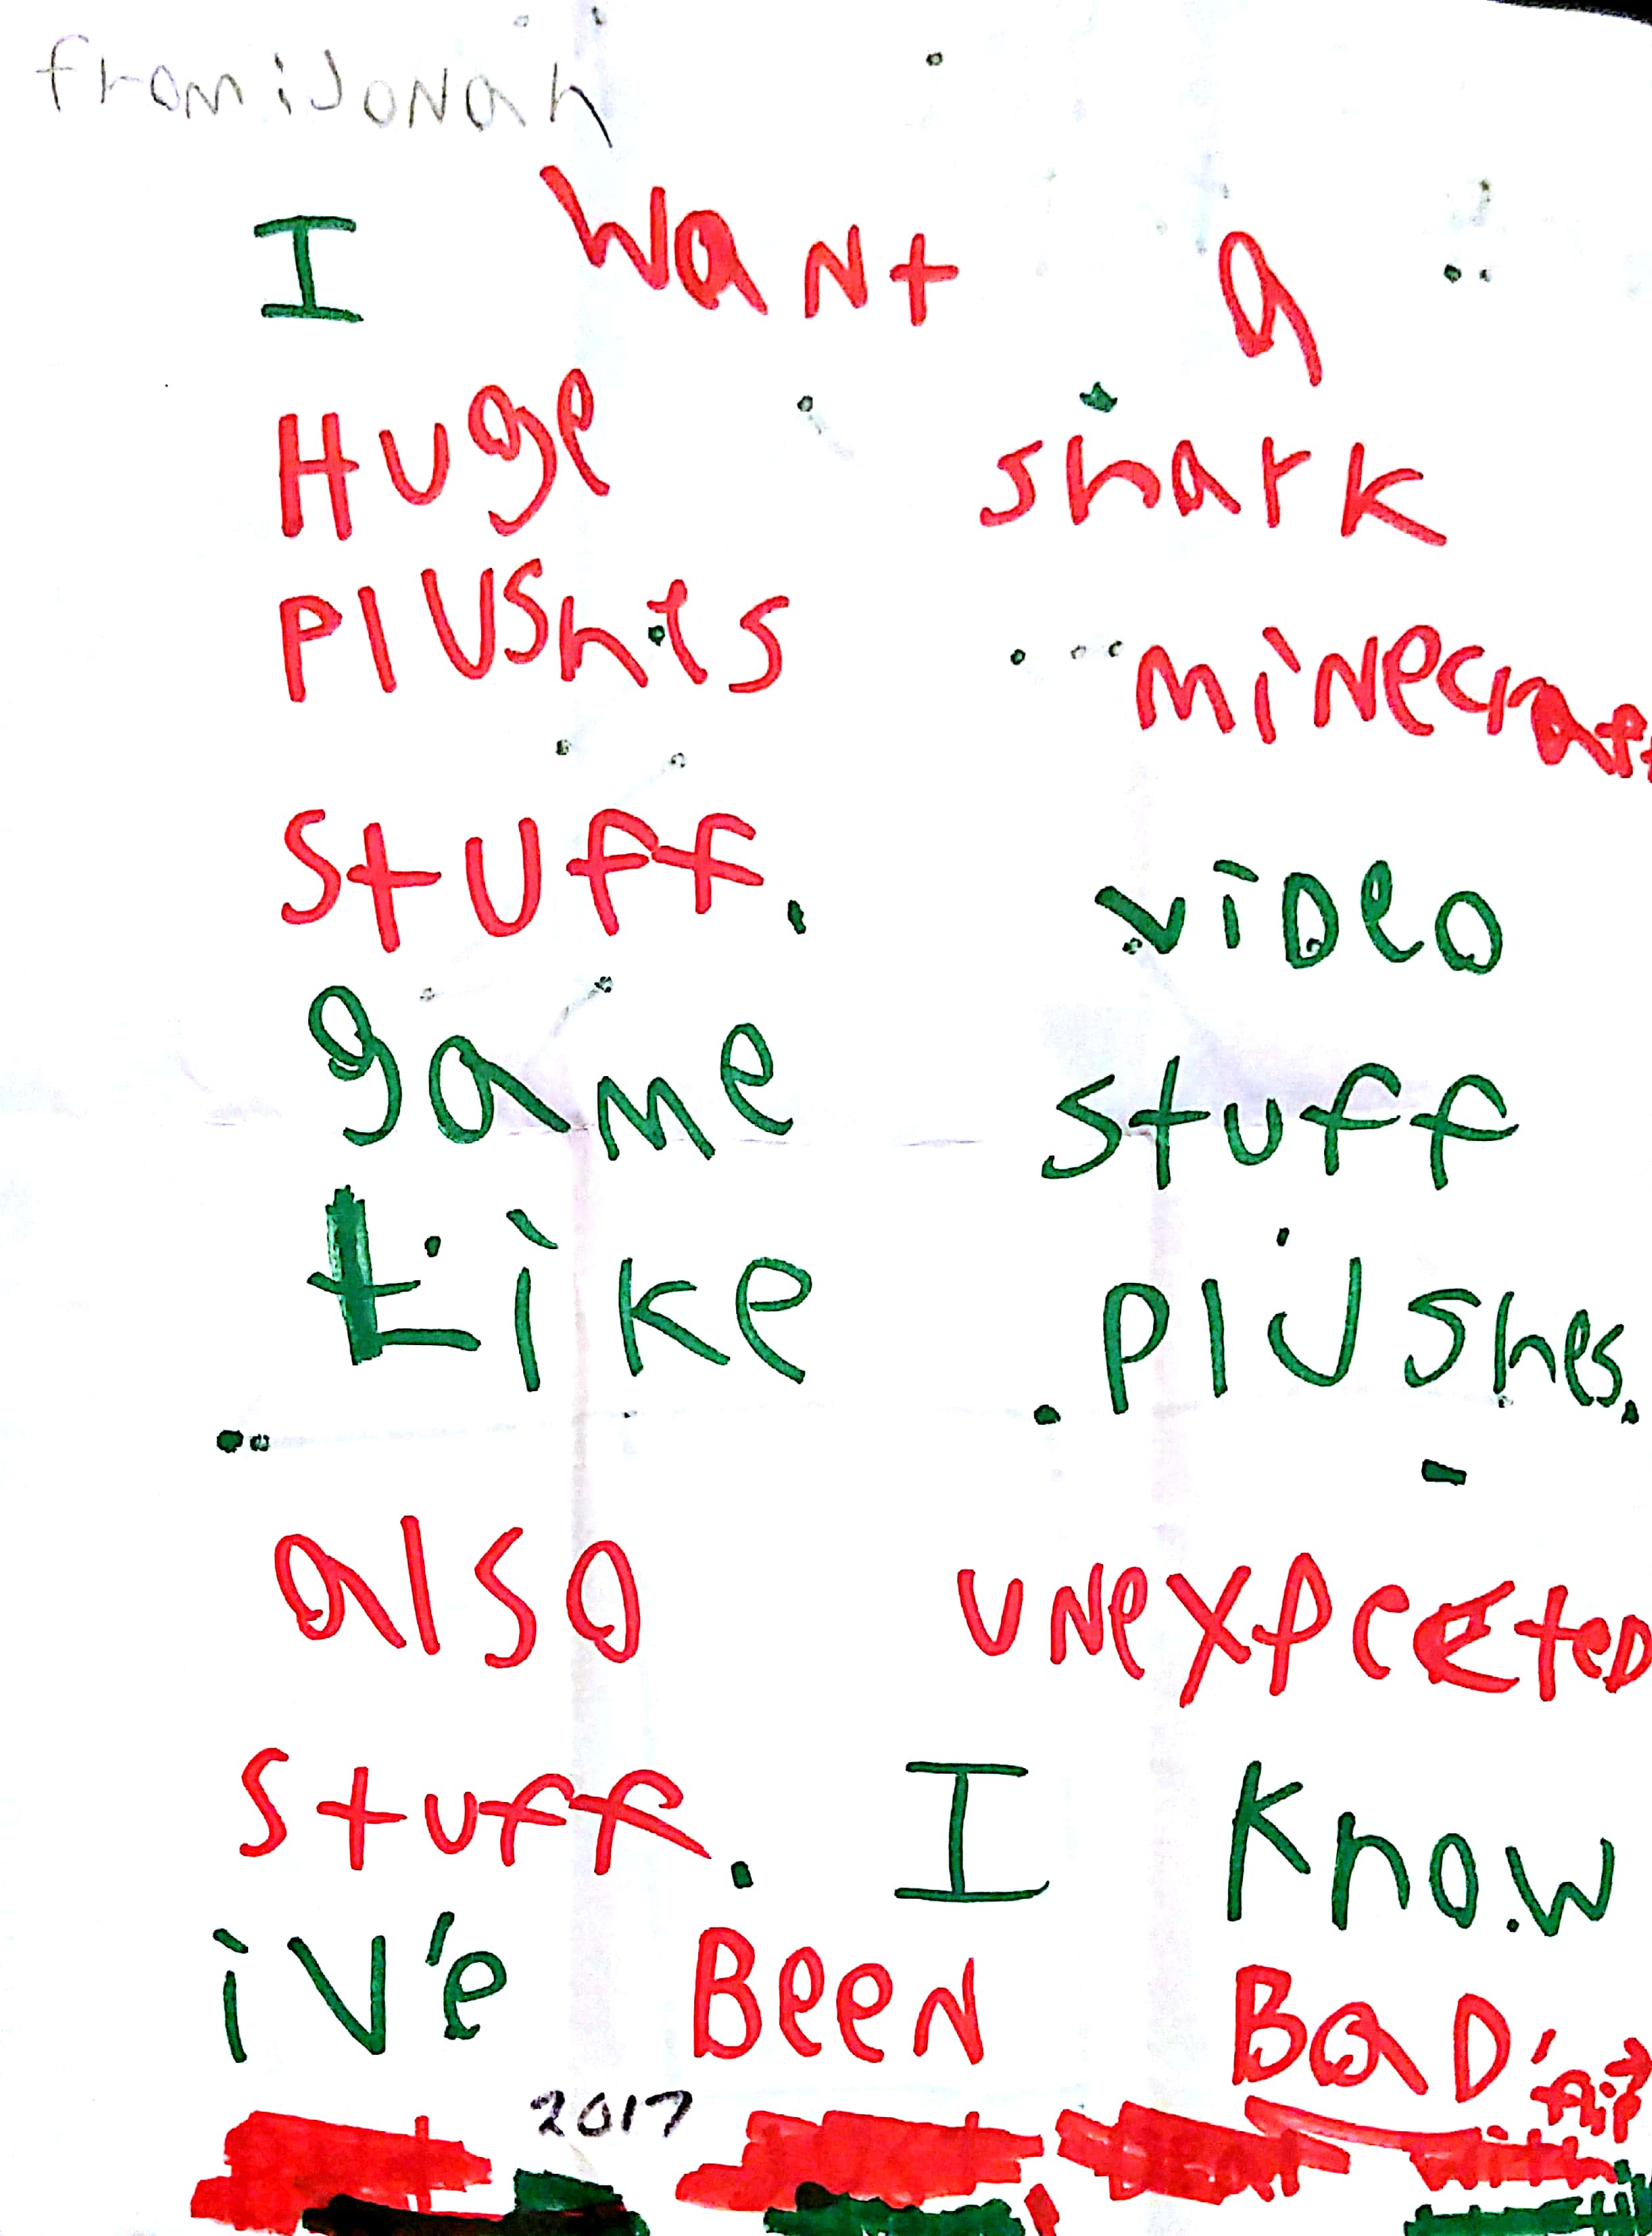 from:Jonah
I want a
Huge shark
Plushes minecraft
stuff. video
game stuff
Like plushes.
also unexpected
stuff. I know
iv'e Been BaD,
flip →
2017